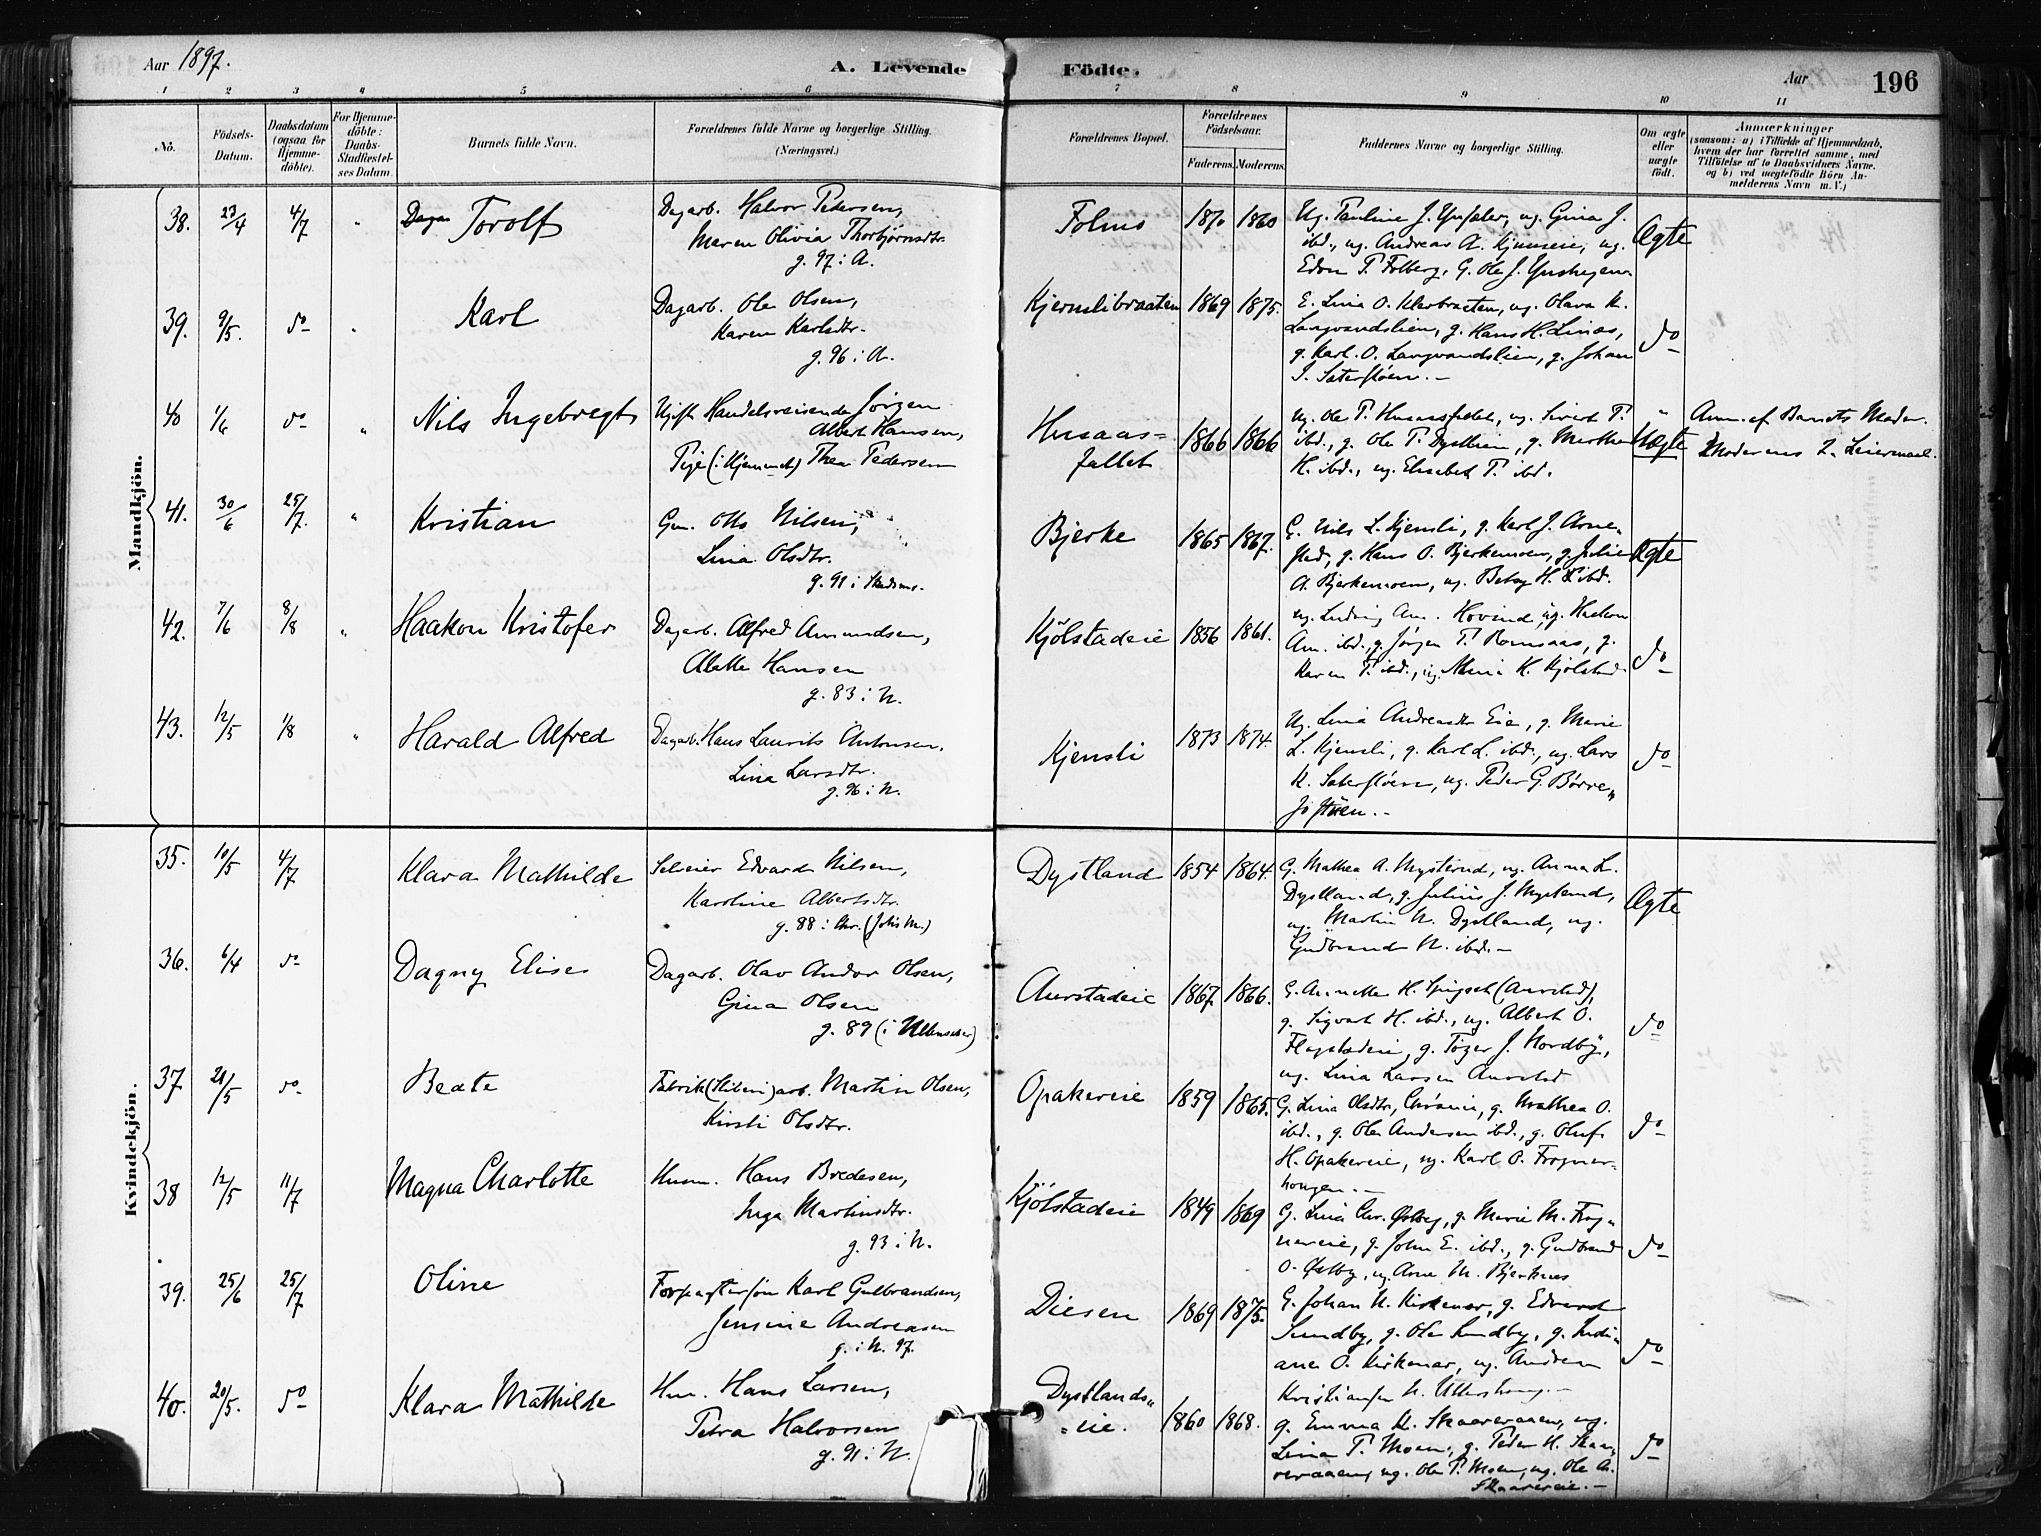 Aar 1897.
A. Levende Födte.
Aar 196
1 2 3 4 5 6 7 8 9 10 11
No.
Födsels-Datum.
Daabsdatum (ogsaa for Hjemme-döbte).
For Hjemme-döbte: Daabs-Stadfæstel-ses Datum.
Barnets fulde Navn.
Forældrenes fulde Navne og borgerlige Stilling. (Næringsvei.)
Forældrenes Bopæl.
Forældrenes Födselsaar.
Faderens. Moderens.
Faddernes Navne og borgerlige Stilling.
Om ægte eller uægte födt.
Anmærkninger
(saasom: a) i Tilfælde af Hjemmedaab, hvem der har forrettet samme, med Tilföielse af to Daabsvidners Navne, og b) ved uægtefödte Börn An-melderens Navn m. V.)
Mandkjön.
38. 23/4 4/7 " Torolf
Dagarb. Halvor Pedersen,
Maren Olivia Thorbjørnsdtr.
g. 97 i A.
Folmo 1870 1860
Ug. Pauline J. ug. Gina J.
ibd., ug. Andreas A. ug.
Edvn T. Folberg, G. Ole J.
Ægte
39. 9/5. do " Karl
Dagarb. Ole Olsen,
Karen Karlsdtr.
g. 96 i A.
Kjernslibraaten 1869 1875.
E. Lina O. ug. Olava K.
Langvandslien, g. Hans H. Linaas,
g. Karl O. Langvandslien, g. Johan
S. Saterfløen.-
do
40 1/6 do " Nils Ingebregt
Ugift Handelsreisende Jørgen
Albert Hansen,
Pige (i Hjemmet) Thea Pedersen
Husaas=
fallet 1866 1866
ug. Ole P. Husaasfallet, ug. Sivert P.
ibd., g. Ole P. Dystlien, g. Marthe
K. ibd., ug. Elisabet P. ibd.
Uægte
Anm. af Barnets Moder.
Moderens 2. Leiermaal.
41. 30/6 25/7. " Kristian
Gm. Otto Nilsen,
Lina Olsdtr.
g. 91 i
Bjerke 1865 1867.
G. Nils L. Kjensli, g. Karl J. Arne-
stad, g. Hans O. Bjerkemoen, g. Julie
A. Bjerkemoen, ug. Betsy H. ibd.
Ægte
42. 7/6 8/8 " Haakon Kristofer
Dagarb. Alfred Amundsen,
Alette Hansen
g. 83 i N.
Kjölstadeie 1856 1861.
ug. Ludvig Am. Hovind, ug. Haakon
Am. ibd., g. Jørgen P. Romsaas, g.
Karen P. ibd., ug. Maria K. Kjølstad
do
43. 12/5 1/8 " Harald Alfred
Dagarb. Hans Laurits Antonsen.
Lina Larsdtr.
g. 96 i N.
Kjensli 1873 1874.
Ug. Lina Andreasdtr Eie, g. Marie
L. Kjensli, g. Karl L. ibd., ug. Lars
K. Saterfløen, ug. Peder G. Børre"
do
Kvindekjön.
35. 10/5 4/7 Klara Mathilde
Selveier Edvard Nilsen,
Karoline Albertsdtr.
g. 88 i Chr. (Johs M.)
Dystland 1854 1864.
G. Mathea A. Mysterud, ug. Anna L.
Dystland, g. Julius J. Nystund,
ug. Martin N. Dystland, ug.
Gudbrand N. ibd.-
Ægte
36. 6/4 do Dagny Elise
Dagarb. Olav Andor Olsen,
Gina Olsen
g. 89 (i Ullensaker)
Aurstadeie 1867. 1866.
G. Annette H. (Aurstad),
g. Sigvart H. ibd., ug. Albert O.
Flagstadeie, g. Tøger J. Nordby,
ug. Lina Larsen Aurstad
do
37 21/5 do Beate
Fabrik (Sliberi) arb. Martin Olsen,
Kirsti Olsdtr.
Opakereie 1859 1865.
G. Lina Olsdtr, g. Mathea O.
ibd., g. Ole Andersen ibd., g. Oluf
H. Opakereie, ug. Karl O. Frogner-
haugen.-
do
38 12/5 11/7 Magna Charlotte
Husm. Hans Bredesen,
Inga Martinsdtr.
g. 93 i N.
Kjölstadeie 1849 1869
G. Lina Chr. Østby, g. Marie M. Frog"
nereie, g. John E. ibd., g. Gudbrand
O. Østby, ug. Arne M. Bjerknes
do
39. 25/6 25/7 Oline
Forpagtersøn Karl Gulbrandsen,
Jensine Andreasen
g. i N. 97.
Diesen 1869 1875.
G. Johan N. Kirkener, g. Edvard
Sundby, g. Ole Sundby, g. Indi"
anna O. Kirkener, ug. Andrea
Kristiansen
do
40. 20/5. do Klara Mathilde
Hm. Hans Larsen,
Petra Halvorsen
g. 91 i N.
Dystlands"
"eie. 1860 1868.
g. Emma K. Skaareraaen, ug.
Lina P. Moen, g. Peder K. Skaa"
reraaen, ug. Ole P. Moen, ug. Ole A.
Skaarereie.-
do